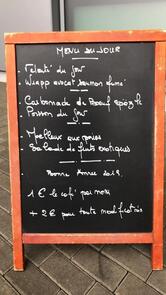 MENU DU JOUR
- Velouté du jour
- Wrapp avocat saumon fumé
- Carbonnade de Boeuf
- Poisson du jour
- Moelleux aux poires
- Salade de fruits exotiques
Bonne Année 2019.
1 € le café
+ 2 € pour toute modification